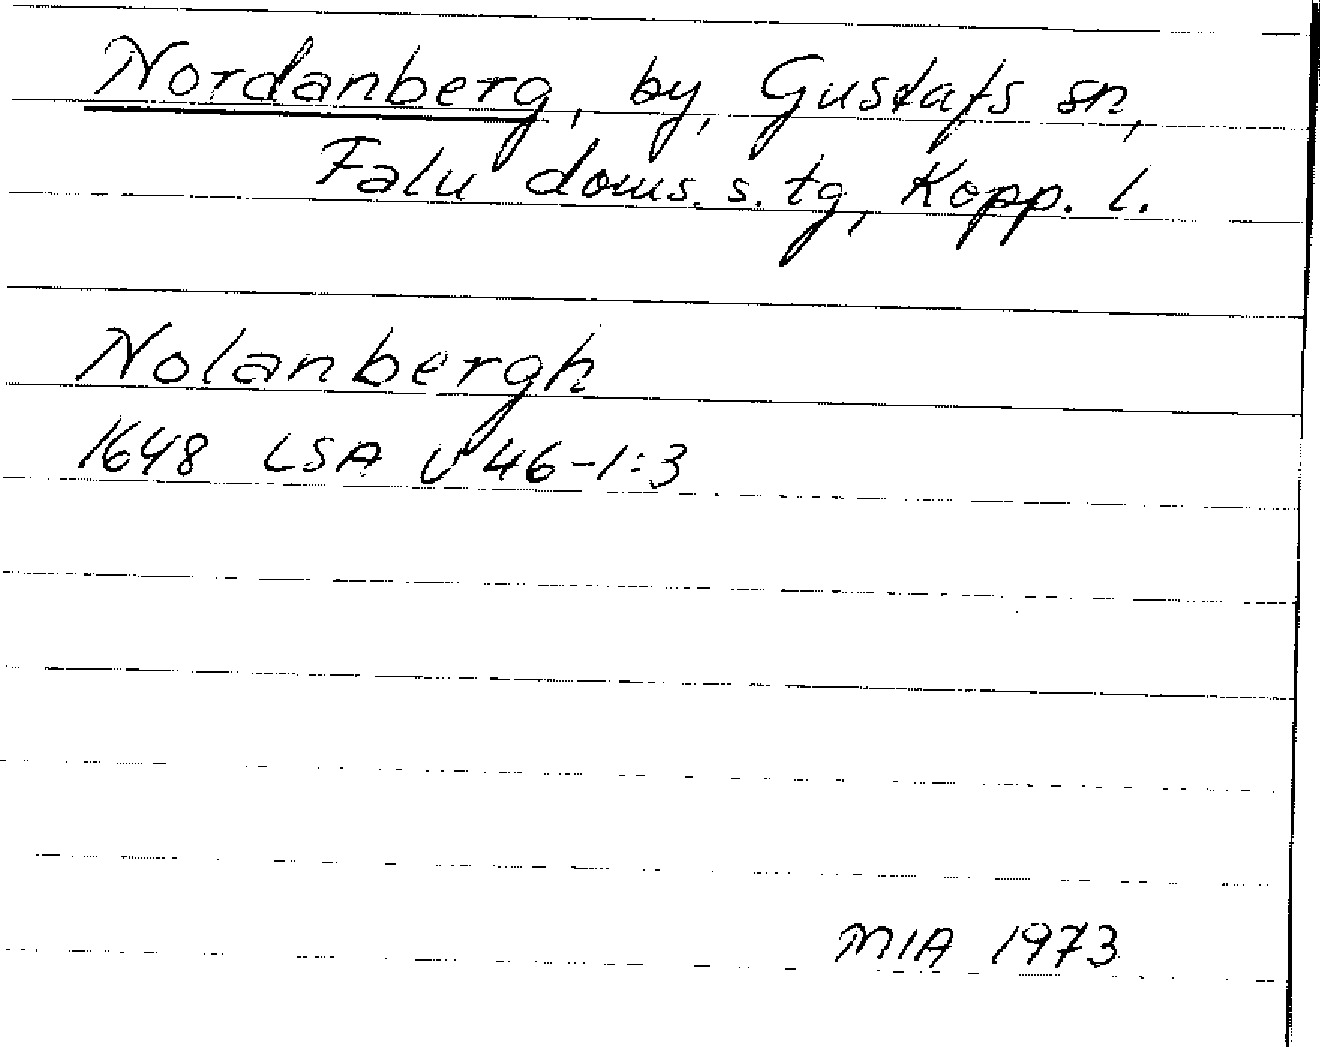 Nordanberg, by, Gustafs sn,
Falu doms. s. tg, Kopp. l.
Nolanbergh
1648 LSA U 46-1:3
MIA 1973